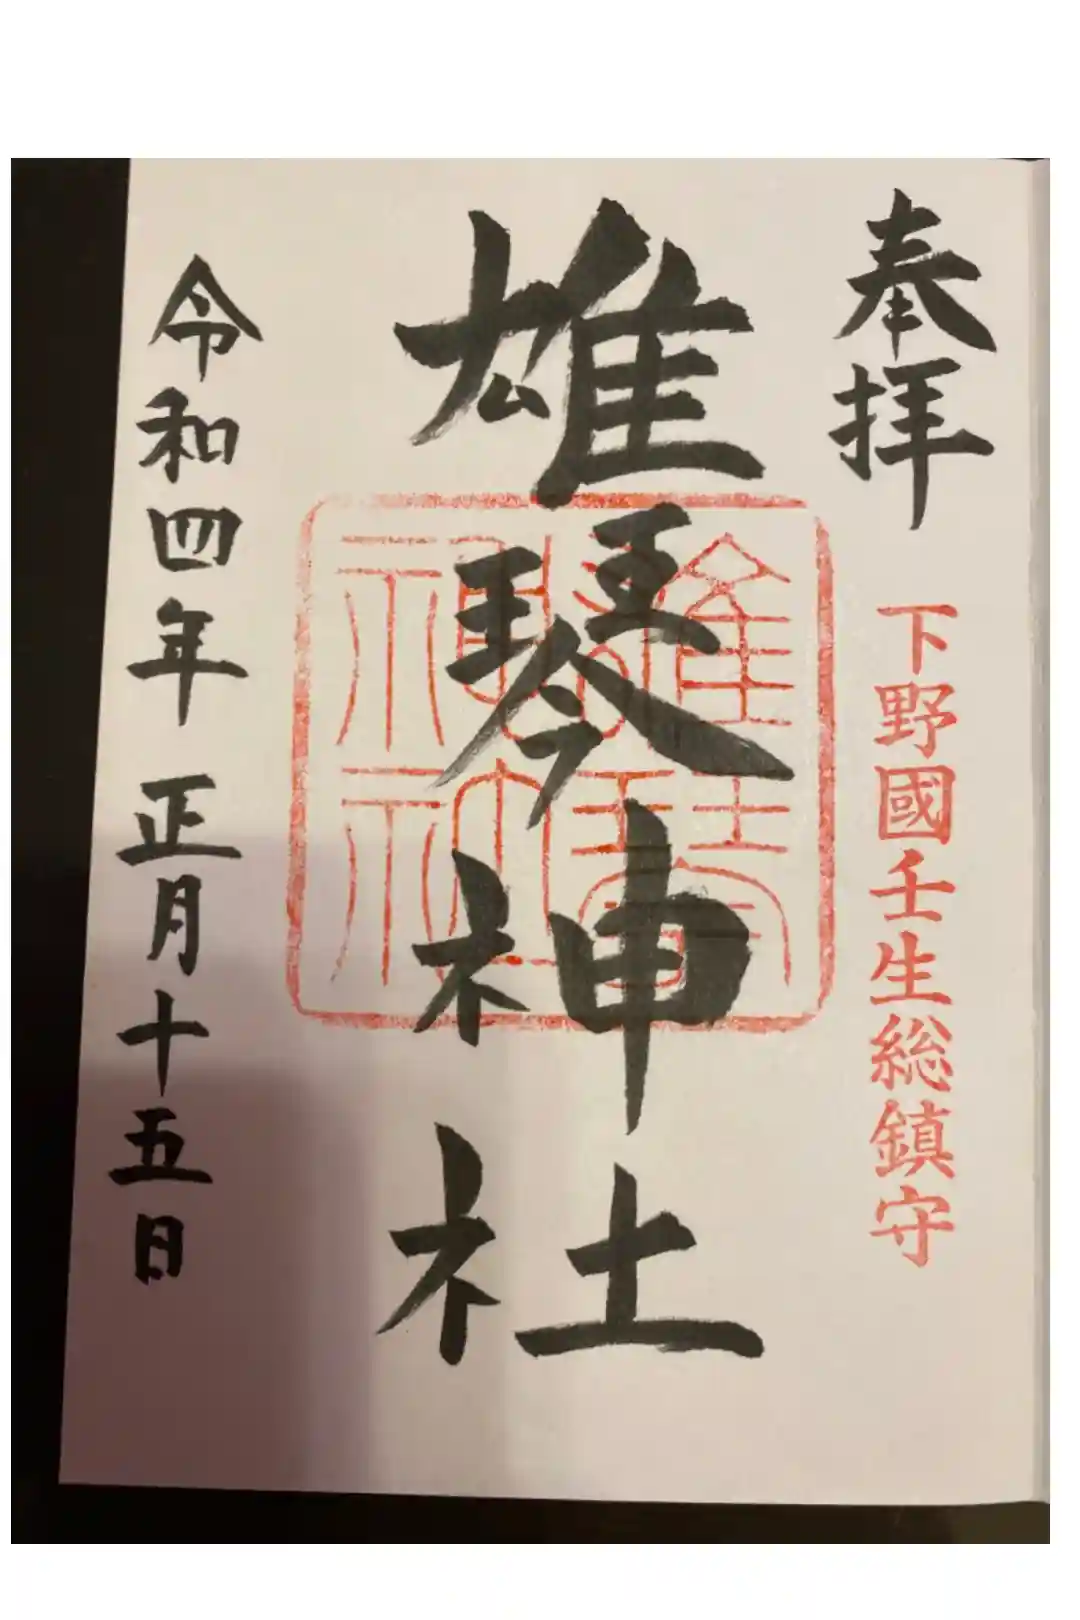 奉拝
下野國壬生総鎮守
雄琴神社
雄琴神社
令和四年 正月十五日